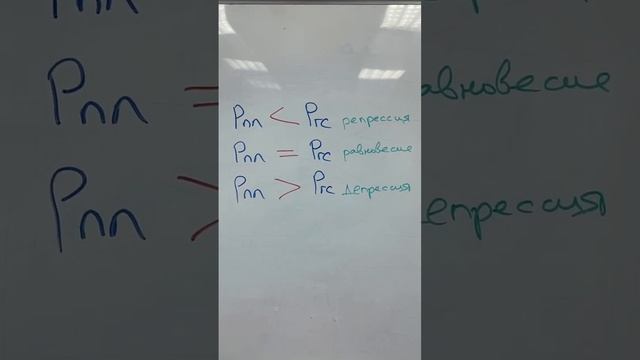 Рпл < Ргс репрессия
Рпл = Ргс равновесие
Рпл > Ргс депрессия